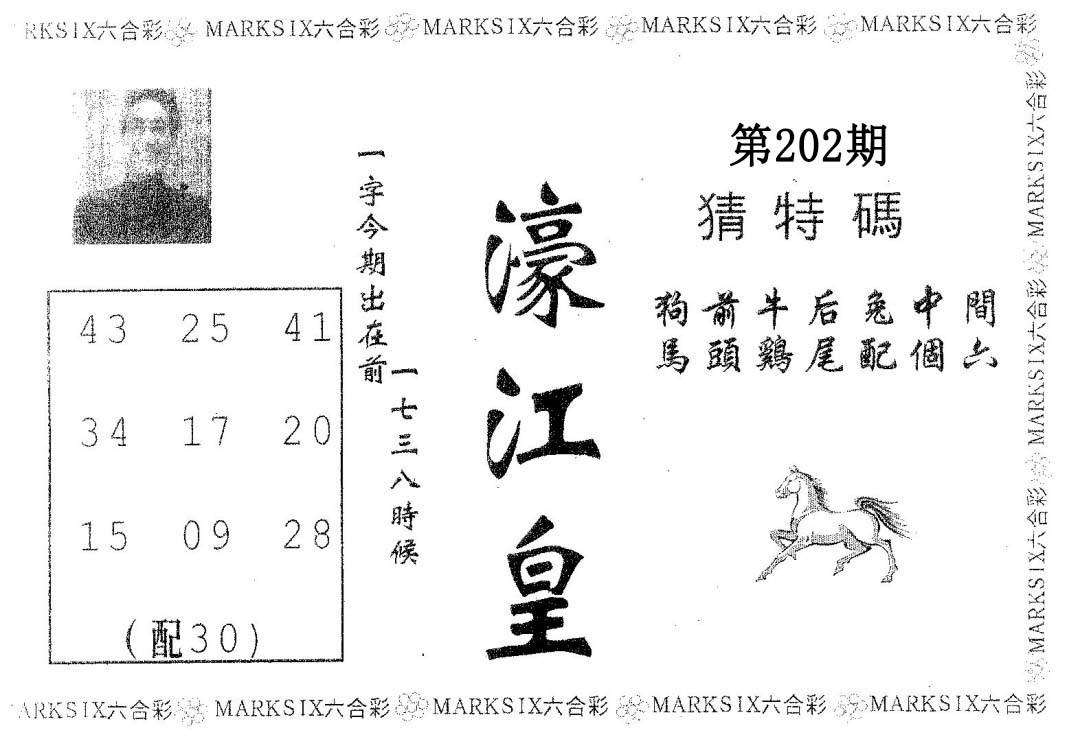 RKSIX六合彩 MARKSIX六合彩 MARKSIX六合彩 MARKSIX六合彩 MARKSIX六合彩
MARKSIX六合彩 MARKSIX六合彩 MARKSIX六合彩
第202期
猜特碼
狗前牛后兔中間
馬頭鷄尾配個六
濠江皇
一字今期出在前
一七三八時候
43 25 41
34 17 20
15 09 28
(配30)
ARKSIX六合彩 MARKSIX六合彩 MARKSIX六合彩 MARKSIX六合彩 MARKSIX六合彩